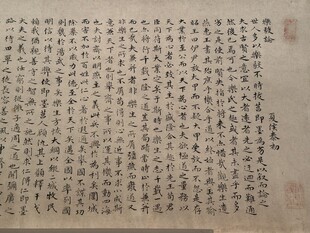 樂毅論
夏侯泰初
世人多以樂毅不時拔莒即墨為劣是以敘而論之
夫求古賢之意宜以大者遠者先之必迂迴而難通
然後已焉可也今樂氏之趣或者其未盡乎而多
劣之是使前賢失指於將來不亦惜哉觀樂生遺
燕惠王書其殆庶乎機合乎道以終始者與其喻
昭王曰伊尹放大甲而不疑大甲受放而不怨是存
大業於至公而以天下為心者也夫欲極道之量務以
天下為心者必致其主於盛隆合其趣於先王苟君
臣同符斯大業定矣于斯時也樂生之志千載一遇
也亦將行千載一隆之道豈其局蹟當時止於兼并
而已哉夫兼并者非樂生之所屑彊燕而廢道又
非樂生之所求也不屑苟得則心無近事不求小成斯
意兼天下者也則舉齊之事所以運其機而動四海
也夫討齊以明燕主之義此兵不興於為利矣圍城
而害不加於百姓此仁心著於遐邇矣舉國不謀其功
除暴不以威力此至德令於天下矣邁全德以率列國
則幾於湯武之事矣樂生方恢大綱以縱二城牧民
明信以待其弊使即墨莒人顧仇其上願釋干戈
賴我猶親善守之智無所之施然則求仁得仁即墨
大夫之義也任窮則從微子適周之道也開彌廣之
路以待田單之徒長容善之風以申齊士之志